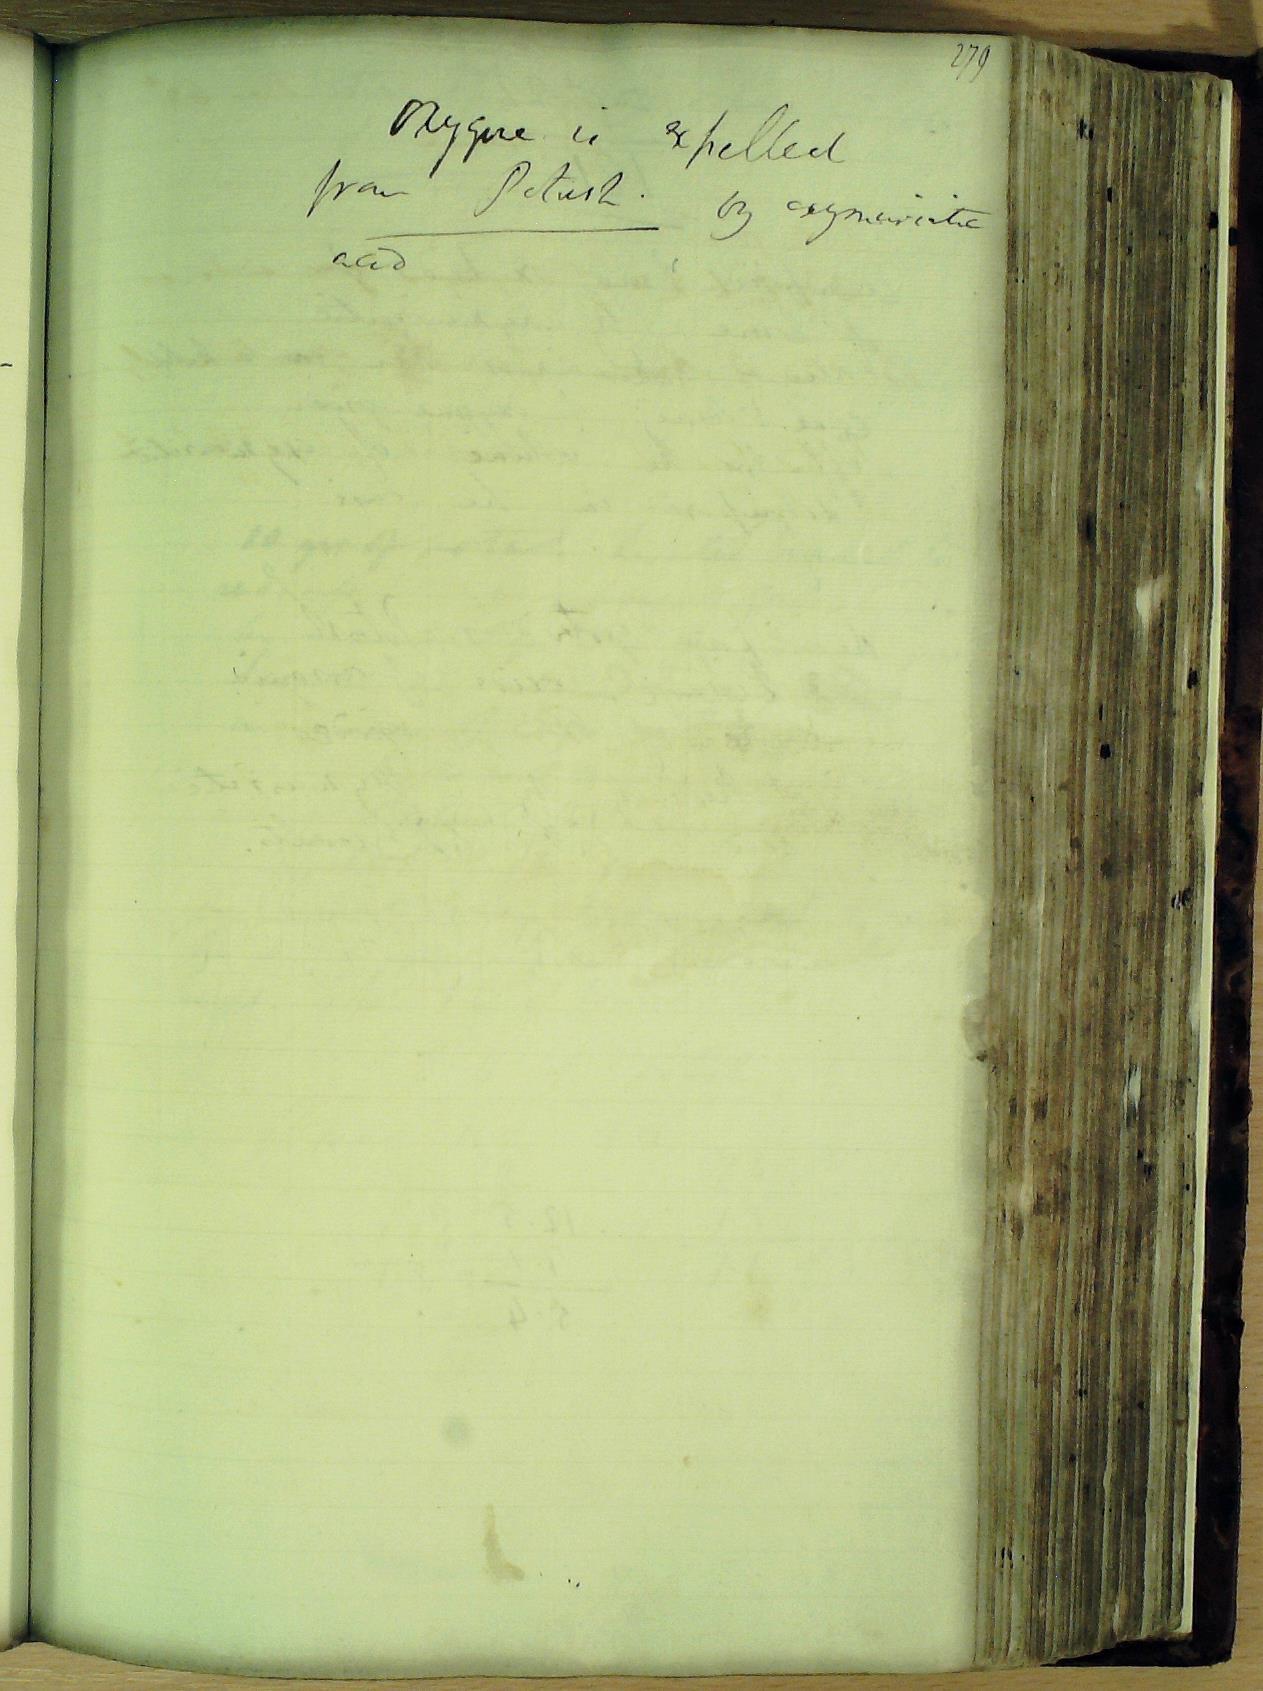 279
Oxygene is expelled
from Potash. by oxymuriatic
acid